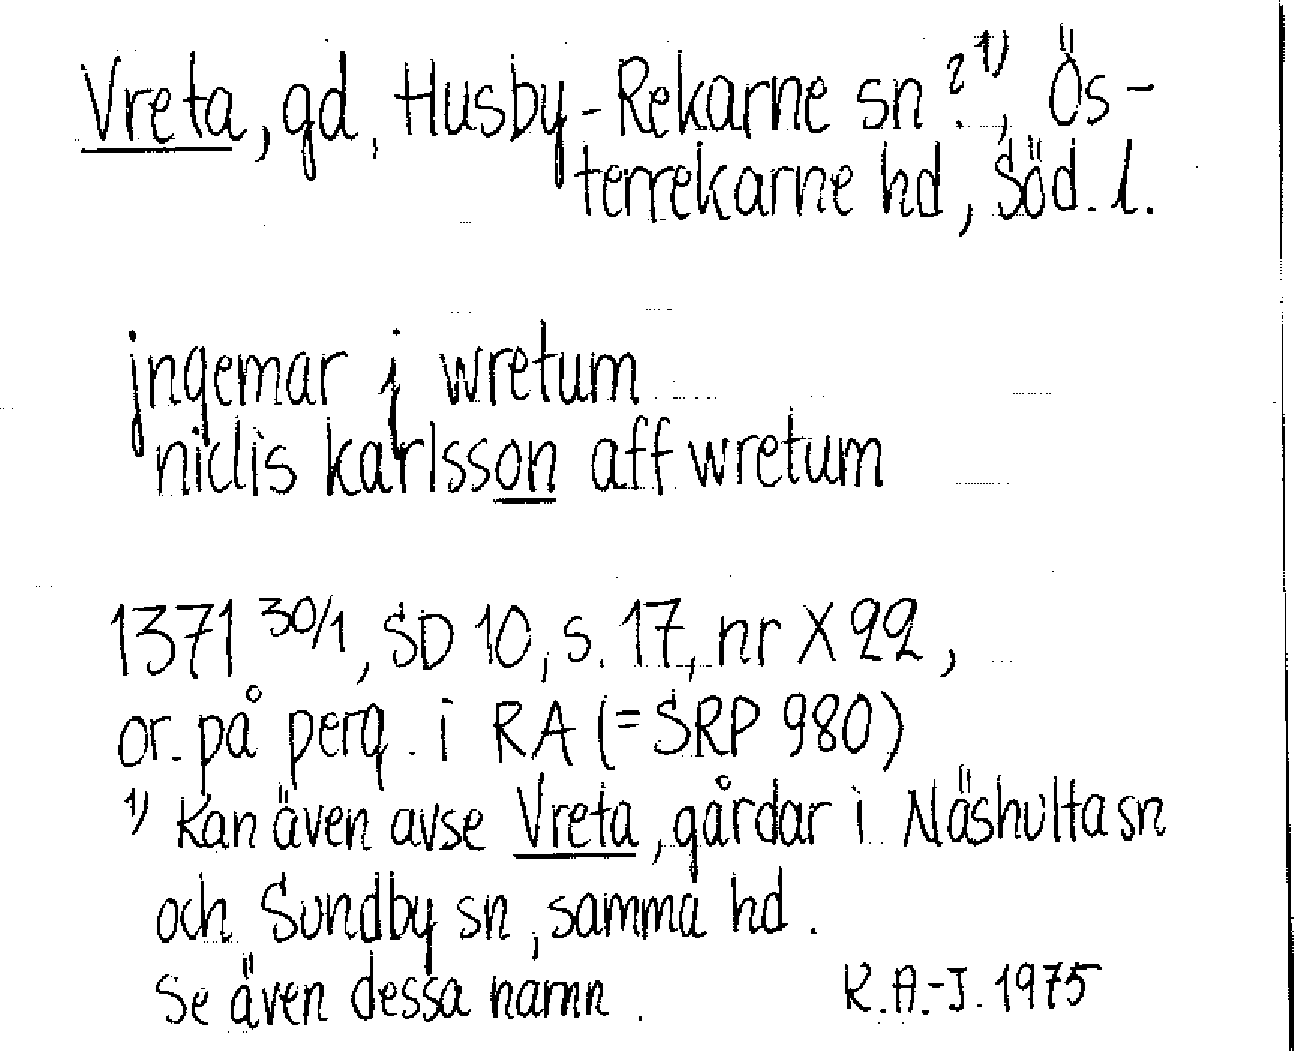 Vreta, gd, Husby-Rekarne sn ?¹⁾, Ös-
terrekarne hd, Söd. l.
jngemar j wretum
niclis karlsson aff wretum
1371 30/1, SD 10, s. 17, nr X 22,
or. på perg. i RA (= SRP 980)
¹⁾ Kan även avse Vreta, gårdar i Näshulta sn
och Sundby sn, samma hd.
Se även dessa namn.
K.A.-J. 1975